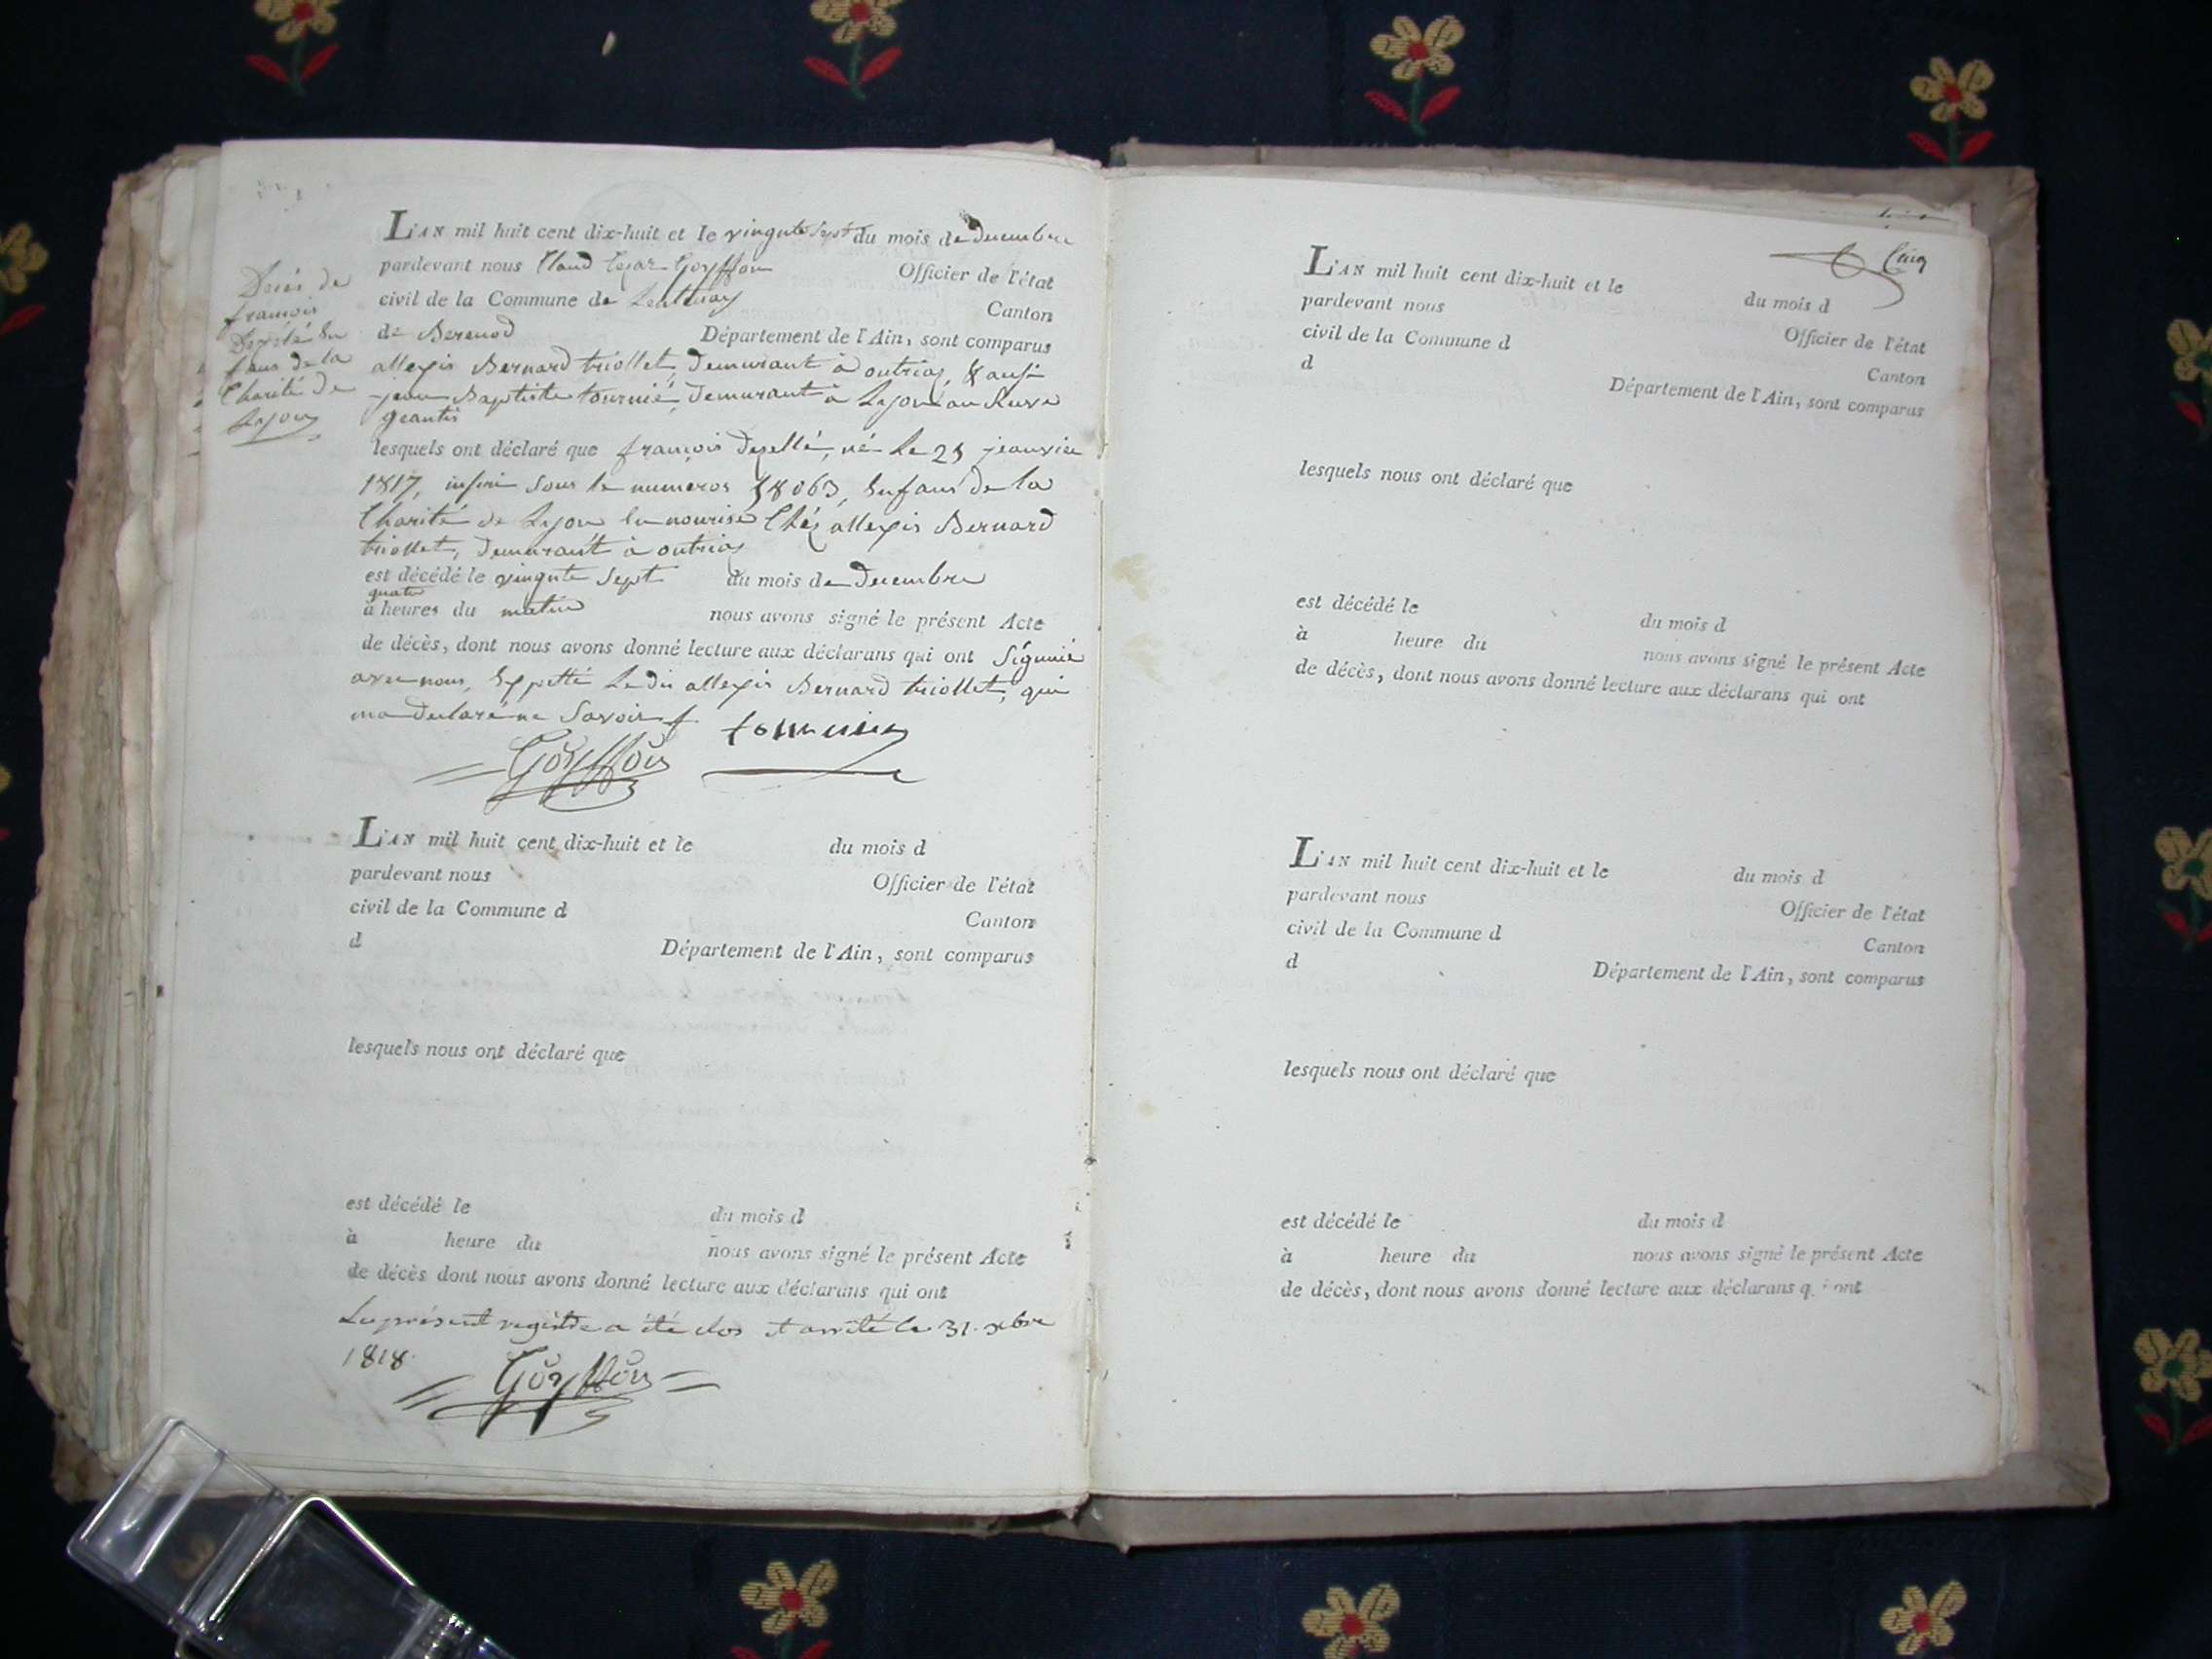 Décés de
francois
Depélé En
fans de la
Charité de
Lyon
L'AN mil huit cent dix-huit et le vingute sept du mois de Decembre
pardevant nous Claud Cezar Goyffon Officier de l'état
civil de la Commune de Lentenay Canton
de Berenod Département de l'Ain, sont comparus
allexis Bernard triollet, Demurant à outriaz, & ausi
jean Baptiste tournié, Demurant à Lyon au
geantis
lesquels ont déclaré que francois Depellé, né Le 25 jeanvier
1817, sous le numeros 18063, Enfans de la
Charité de Lyon En nourise Chéz allexis Bernard
triollet, Demurant à outriaz
est décédé le vingute Sept du mois de Decembre
quatre
à heures du matin nous avons signé le présent Acte
de décès, dont nous avons donné lecture aux déclarans qui ont Signié
avec nous, Exsetté Le dit allexis Bernard triollet, qui
ma Declaré ne Savoir f.
Goyffon
L'AN mil huit cent dix-huit et le du mois d
pardevant nous Officier de l'état
civil de la Commune d Canton
d Département de l'Ain, sont comparus
lesquels nous ont déclaré que
est décédé le du mois d
à heure du nous avons signé le présent Acte
de décès dont nous avons donné lecture aux déclarans qui ont
Le présent registre a été clos et arrêté le 31. xbre
1818.
Goyffon
Cinq
L'AN mil huit cent dix-huit et le du mois d
pardevant nous Officier de l'état
civil de la Commune d Canton
d Département de l'Ain, sont comparus
lesquels nous ont déclaré que
est décédé le du mois d
à heure du nous avons signé le présent Acte
de décès, dont nous avons donné lecture aux déclarans qui ont
L'AN mil huit cent dix-huit et le du mois d
pardevant nous Officier de l'état
civil de la Commune d Canton
d Département de l'Ain, sont comparus
lesquels nous ont déclaré que
est décédé le du mois d
à heure du nous avons signé le présent Acte
de décès, dont nous avons donné lecture aux déclarans q i ont